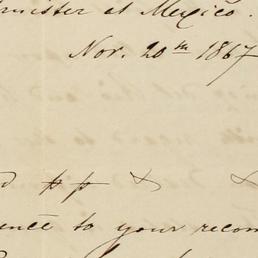 minister at Mexico.
Nov. 20th 1867
pp &
ence to your recom